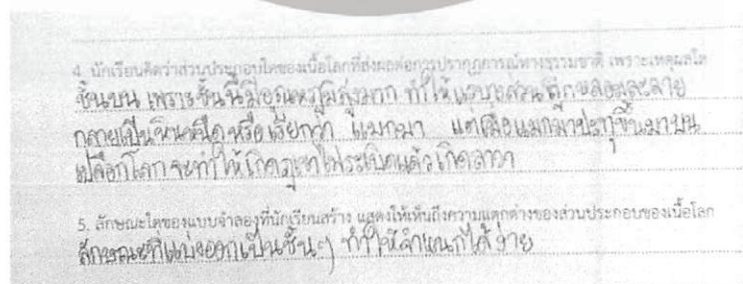 4. นักเรียนคิดว่าส่วนประกอบใดของเนื้อโลกที่ส่งผลต่อการปรากฏการณ์ทางธรรมชาติ เพราะเหตุผลใด
ชั้นบน เพราะชั้นนี้มีอุณหภูมิสูงมาก ทำให้แร่บางส่วนถูกหลอมละลาย
กลายเป็นหินหนืดหรือเรียกว่า แมกมา แต่เมื่อแมกมาปะทุขึ้นมาบน
เปลือกโลกจะทำให้เกิดภูเขาไฟระเบิดแล้วเกิดลาวา
5. ลักษณะใดของแบบจำลองที่นักเรียนสร้าง แสดงให้เห็นถึงความแตกต่างของส่วนประกอบของเนื้อโลก
ลักษณะที่แบ่งออกเป็นชั้นๆ ทำให้จำแนกได้ง่าย